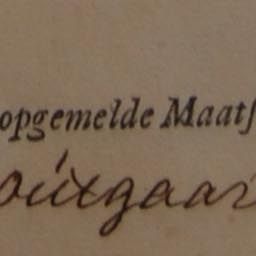 opgemelde Maatſ
outgaar